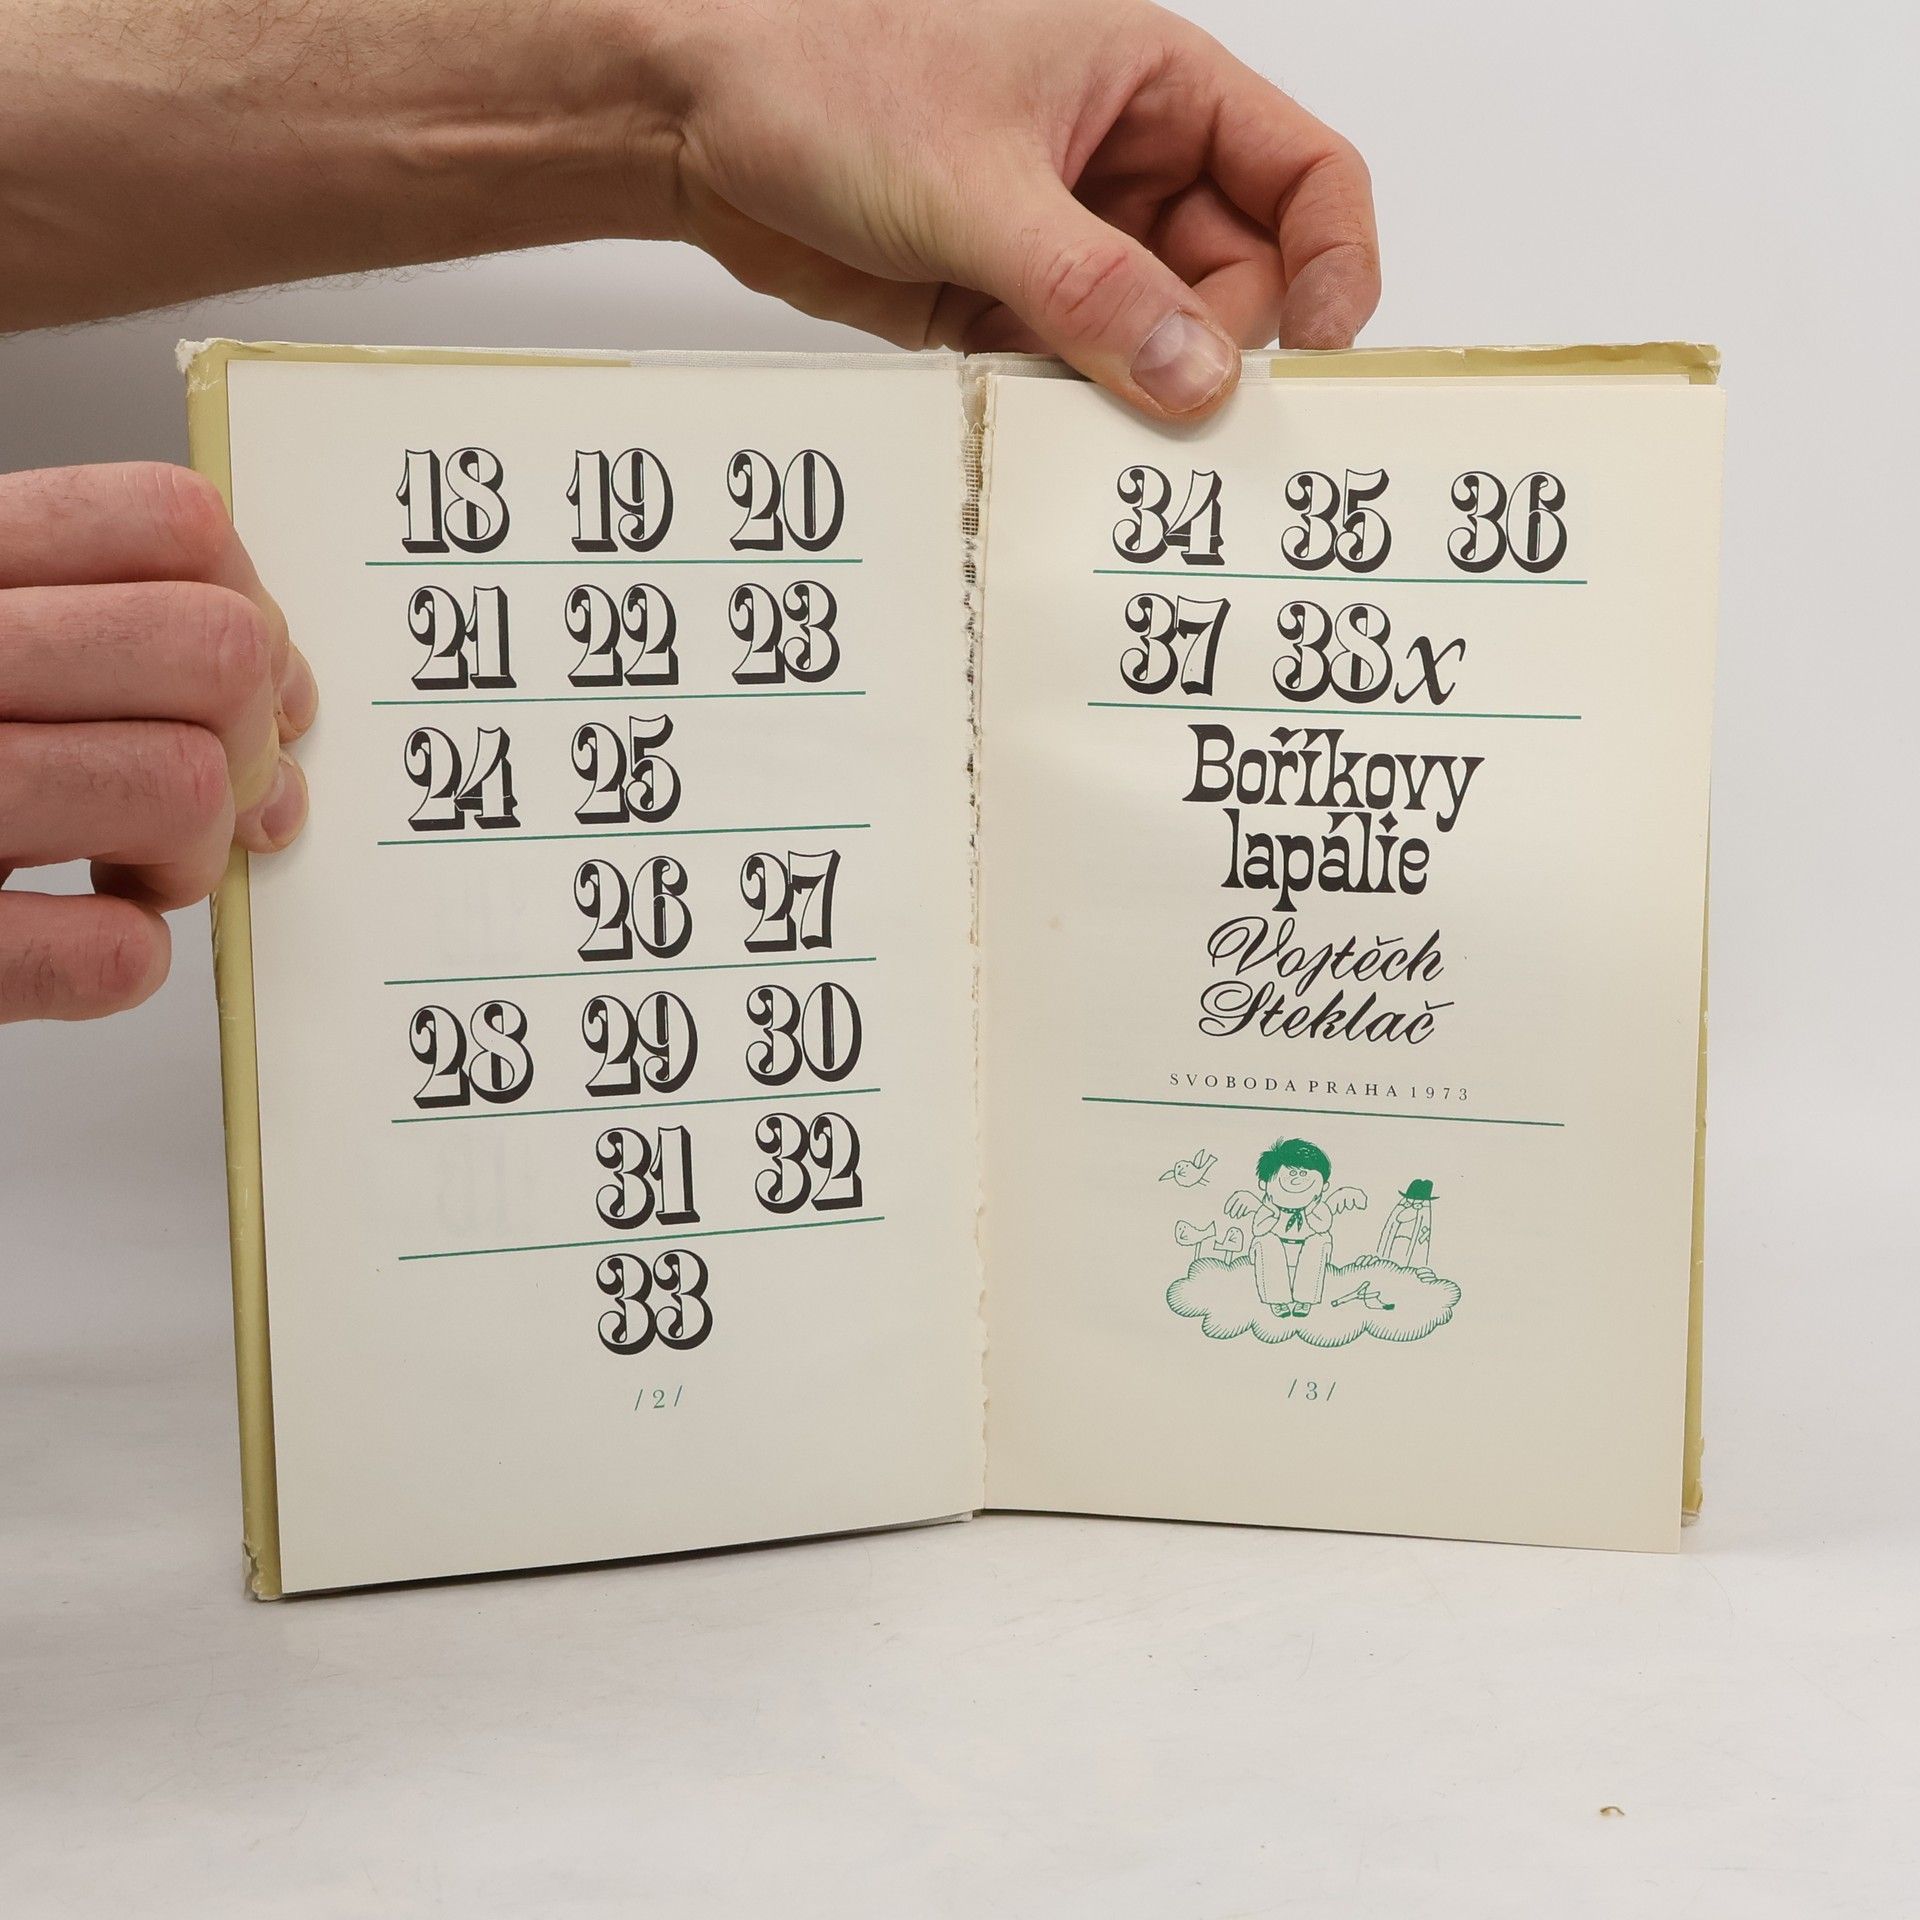 18 19 20
21 22 23
24 25
26 27
28 29 30
31 32
33
/ 2 /
34 35 36
37 38x
Boříkovy
lapálie
Vojtěch
Steklač
SVOBODA PRAHA 1973
/ 3 /